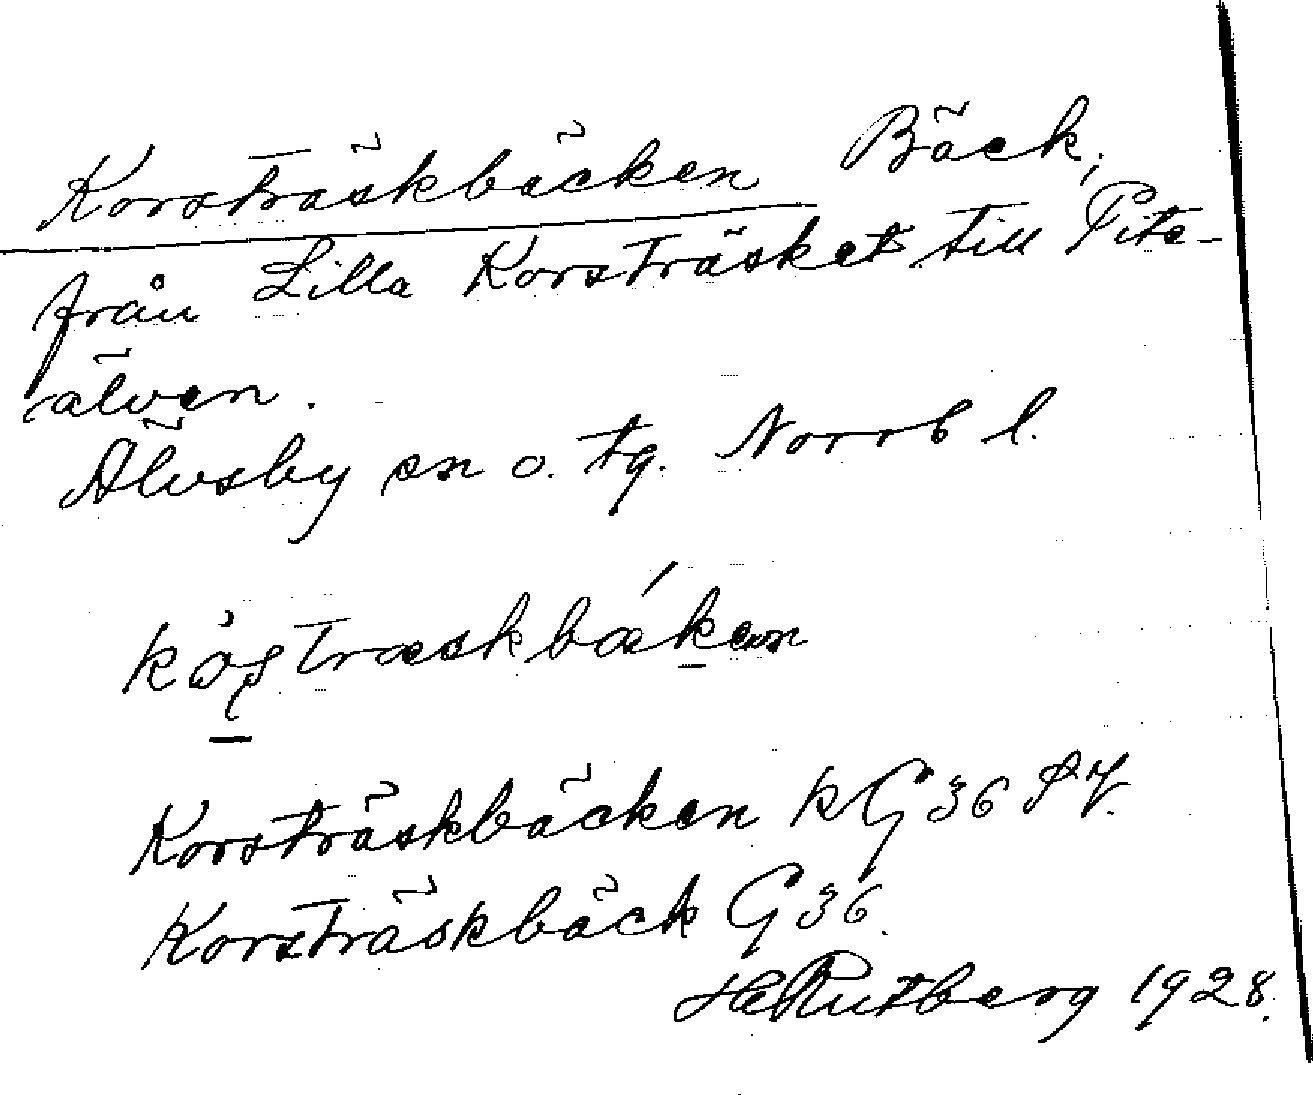 Korsträskbäcken Bäck;
från Lilla Korsträsket till Pite-
älven.
Älvsby sn o. tg. Norrb l.
Korsträskbäcken k G 36
Korsträskbäck G 36.
HRutberg 1928.